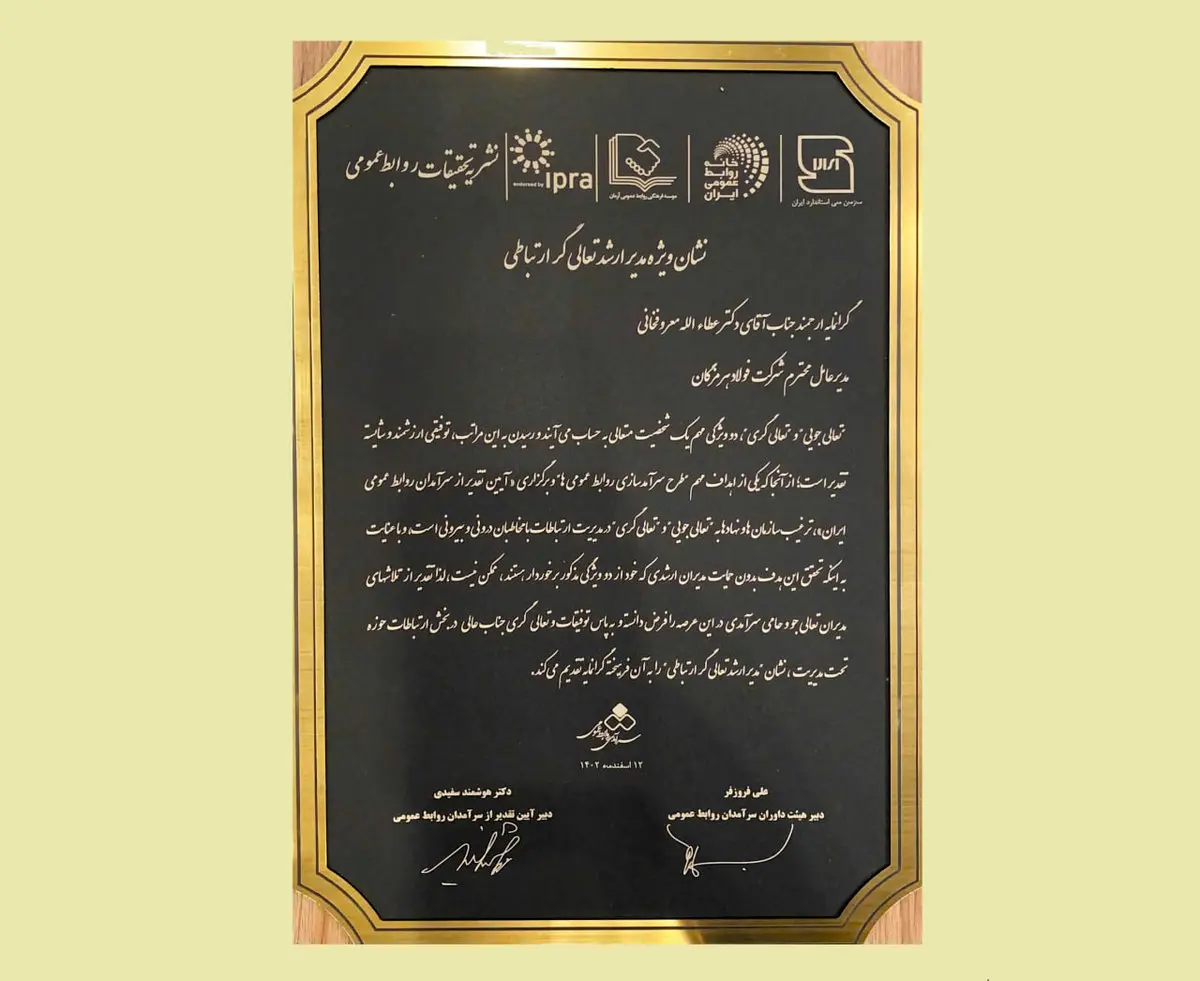 نشریه تحقیقات روابط عمومی
endorsed by ipra
موسسه فرهنگی روابط عمومی آرمان
خانه
روابط
عمومی
ایران
سازمان ملی استاندارد ایران
نشان ویژه مدیر ارشد تعالی گر ارتباطی
گرانمایه ارجمند جناب آقای دکتر عطاء الله معروفخانی
مدیرعامل محترم شرکت فولاد هرمزگان
"تعالی جویی" و "تعالی گری"، دو ویژگی مهم یک شخصیت متعالی به حساب می آیند و رسیدن به این مراتب، توفیقی ارزشمند و شایسته
تقدیر است؛ از آنجا که یکی از اهداف مهم "طرح سرآمدسازی روابط عمومی ها" و برگزاری «آیین تقدیر از سرآمدان روابط عمومی
ایران»، ترغیب سازمان ها و نهادها به "تعالی جویی" و "تعالی گری" در مدیریت ارتباطات با مخاطبان درونی و بیرونی است، و با عنایت
به اینکه تحقق این هدف بدون حمایت مدیران ارشدی که خود از دو ویژگی مذکور برخوردار هستند، ممکن نیست، لذا تقدیر از تلاشهای
مدیران تعالی جو و حامی سرآمدی در این عرصه را فرض دانسته و به پاس توفیقات و تعالی گری جناب عالی در بخش ارتباطات حوزه
تحت مدیریت، نشان "مدیر ارشد تعالی گر ارتباطی" را به آن فریخته گرانمایه تقدیم می کند.
سرآمدی روابط عمومی
۱۲ اسفندماه ۱۴۰۲
علی فروزفر
دبیر هیئت داوران سرآمدان روابط عمومی
دکتر هوشمند سفیدی
دبیر آیین تقدیر از سرآمدان روابط عمومی